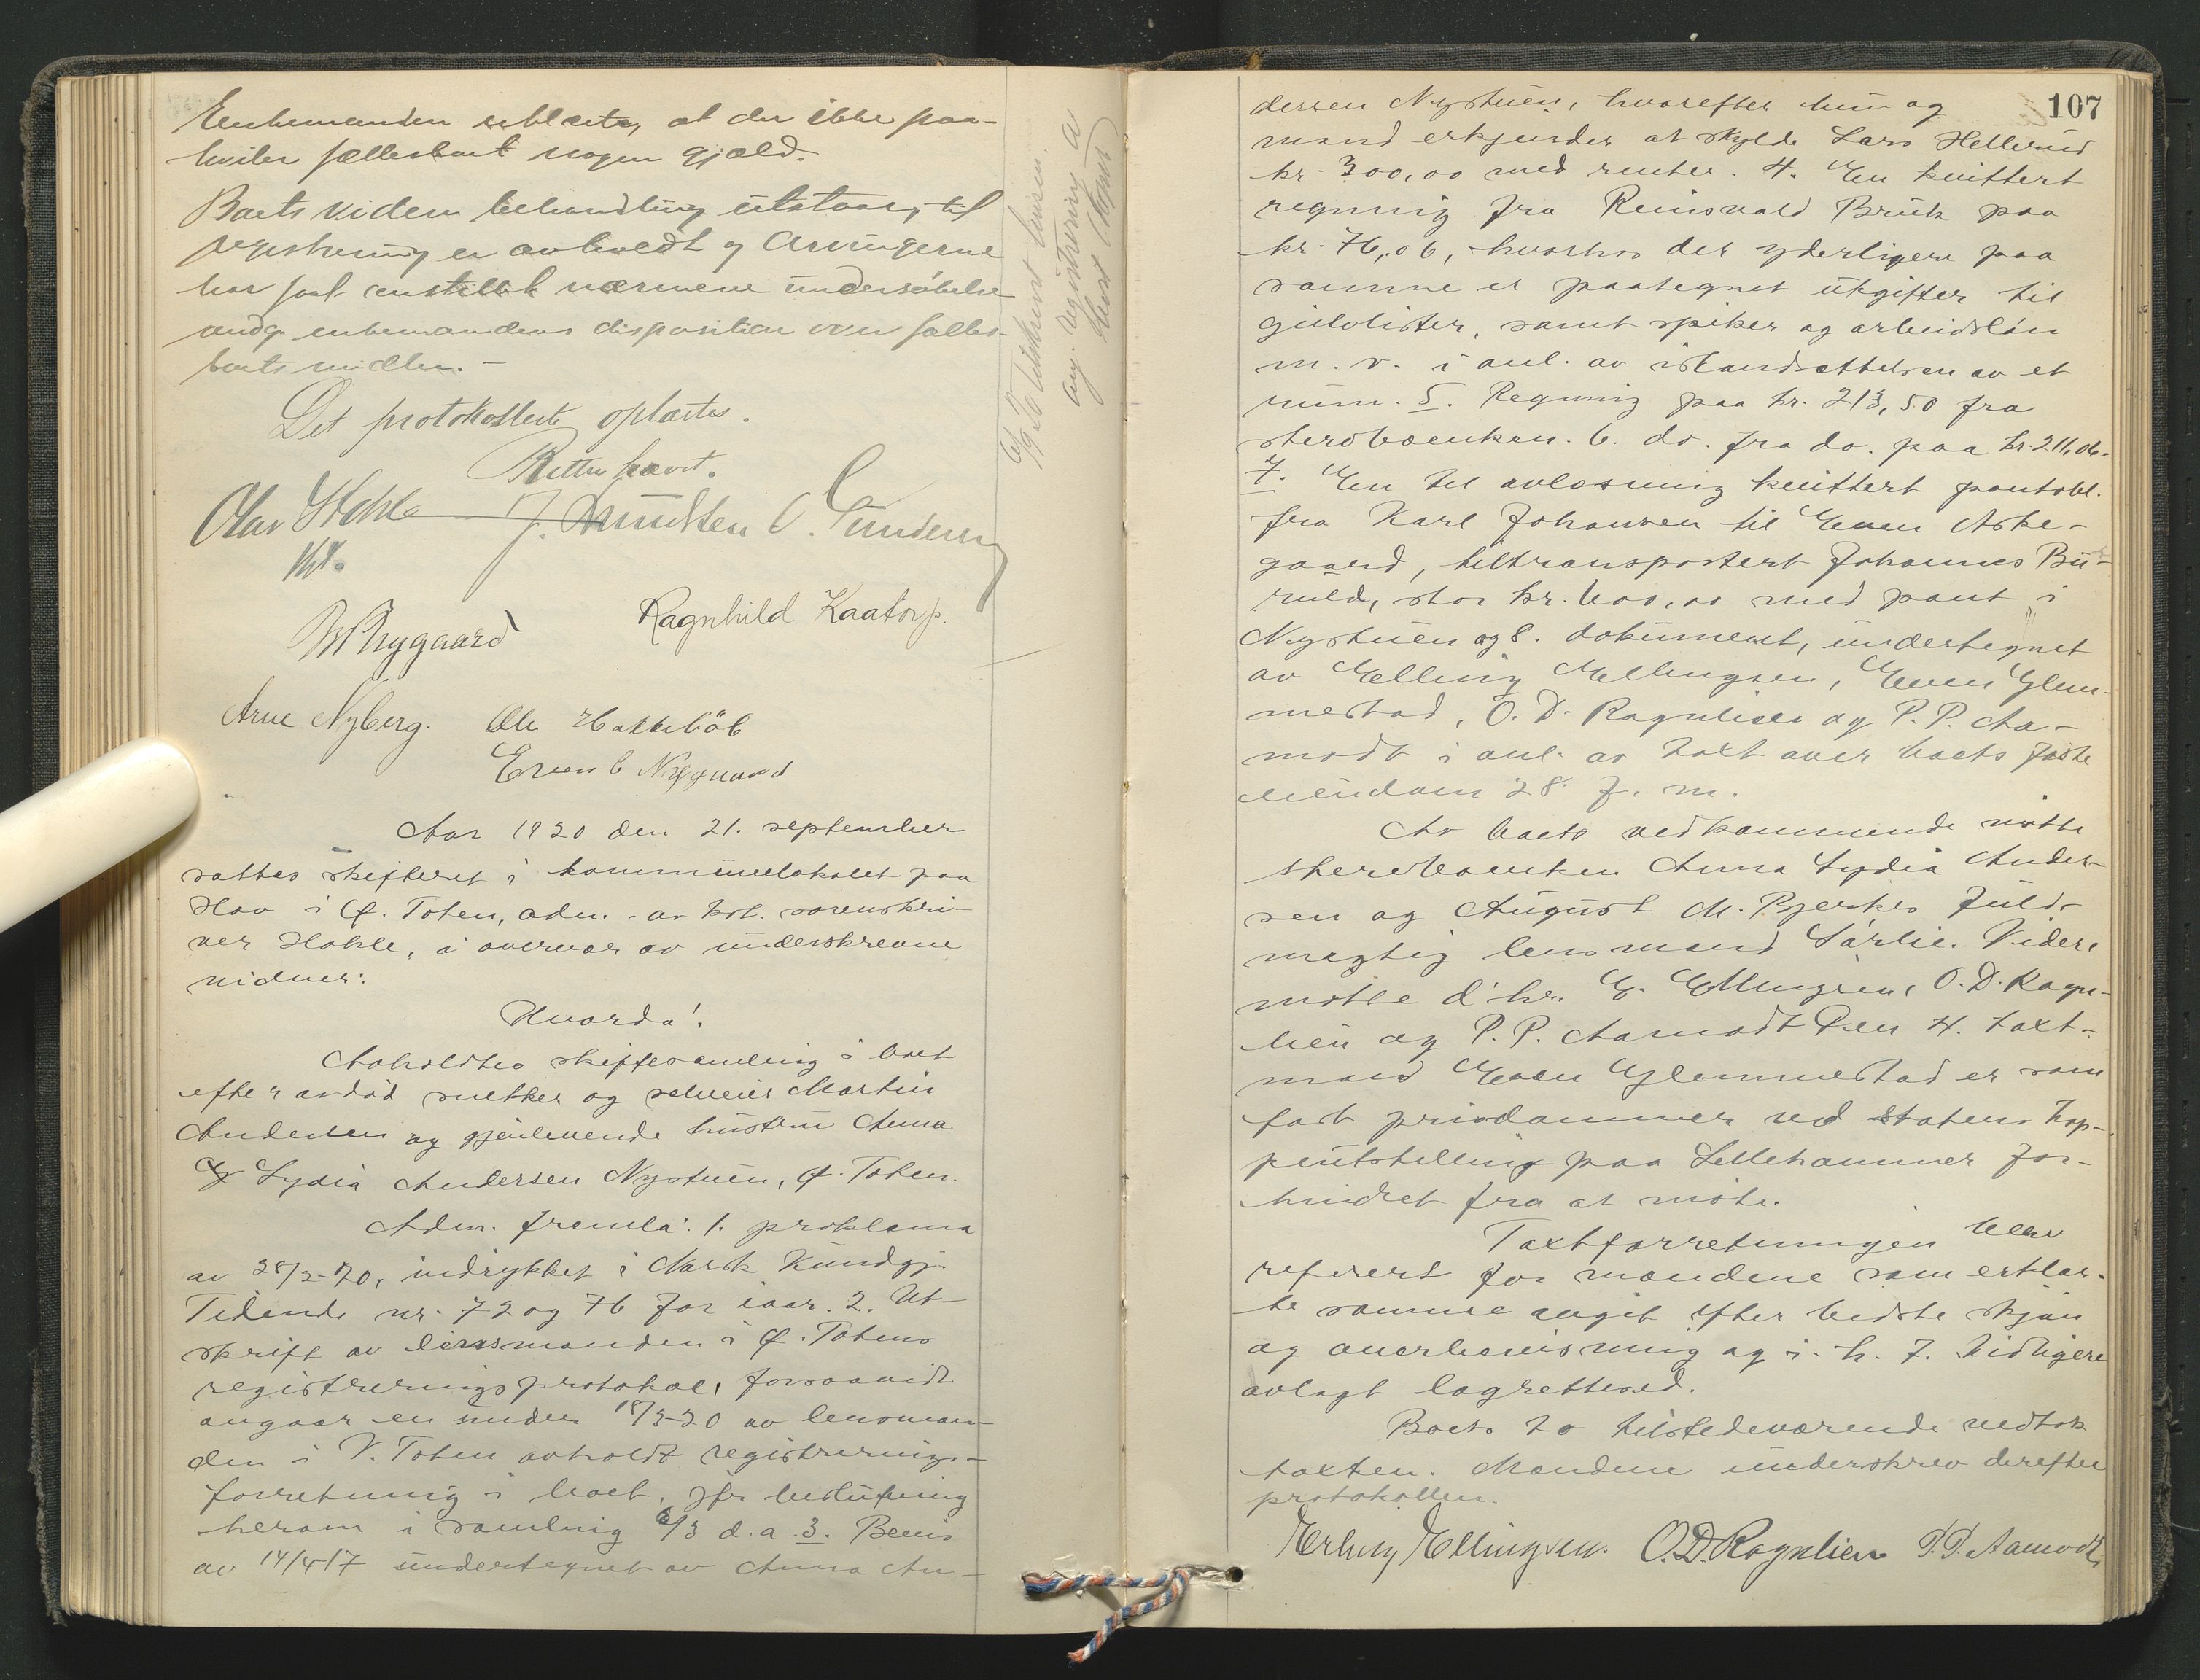 Enkemanden erklærte, at der ikke paa-
hviler fællesboet nogen gjæld.
Boets videre behandling utstaar, til
registrering er avholdt og arvingerne
har faat anstillet nærmere undersökelse
ang. enkemandens disposition over fælles-
boets midler. -
Det protokollerte oplæstes.
Retten hævet.
Olav Hohle J. Knudsen
Kst.
Nygaard Ragnhild Kaatorp.
Arne Nyberg. Ole
Even Nygaard
Utskrift
ang. registrering
Aar 1920 den 21. september
sattes skifteret i kommunelokalet paa
Hov i Ø. Toten, adm. av kst. sorenskri-
ver Hohle, i overvær av underskrevne
vidner:
Hvorda!
Avholdtes skiftesamling i boet
efter avdöd snekker og selveier Martin
Andersen og gjenlevende hustru Anna
Lydia Andersen Nystuen, Ø. Toten.
Adm. fremla: 1. proklama
av 28/2-20, indrykket i Norsk Kundgj.
Tidende nr. 72 og 76 for iaar. 2. Ut-
skrift av lensmanden i Ø. Totens
registreringsprotokol, forsaavidt
angaar en under 18/3-20 av lensman-
den i V. Toten avholdt registrerings-
forretning i boet, jfr beslutning
herom i samling 6/3 d.a. 3. Bevis
av 14/4 17 undertegnet av Anna An-
107
dersen Nystuen, hvorefter hun og
mand erkjender at skylde Lars Hellerud
kr. 300,00 med renter. 4. En kvittert
regning fra Reinsvold Bruk paa
kr. 76,06, hvorhos der yderligere paa
samme er paategnet utgifter til
gulvlister, samt spiker og arbeidslön
m. v. i anl. av istandsættelsen av et
rum. 5. Regning paa kr. 213,50 fra
sterboenken. 6. do. fra do. paa kr. 211,06.
7. En til avlæsning kvittert pantobl.
fra Karl Johansen til Even Aske-
gaard, tiltransportert Johannes Bu-
ruld, stor kr. 600,00 med pant i
Nystuen og 8. dokument, undertegnet
av Elling Ellingsen, Even Glem-
mestad, O. D. Ragnlien og P. P. Aa-
modt i anl. av takst over boets faste
eiendom 28. f. m.
Av boets vedkommende mötte
sterboenken Anna Lydia Ander-
sen og August M. Bjerkes fuld-
mægtig lensmand Sörlie. Videre
mötte d'hr. E. Ellingsen, O. D. Ragn-
lien og P. P. Aamodt. Den 4. takst-
mand Even Glemmestad er som
fast prisdommer ved statens hop-
peutstilling paa Lillehammer for-
hindret fra at möte.
Takstforretningen blev
referert for mændene som erklær-
te samme avgit efter bedste skjön
og overbevisning og i h. t. tidligere
avlagt lagretteed.
Boets to tilstedeværende vedtok
taksten. Mændene underskrev derefter
protokollen.
Erling Ellingsen. O. D. Ragnlien P. P. Aamodt